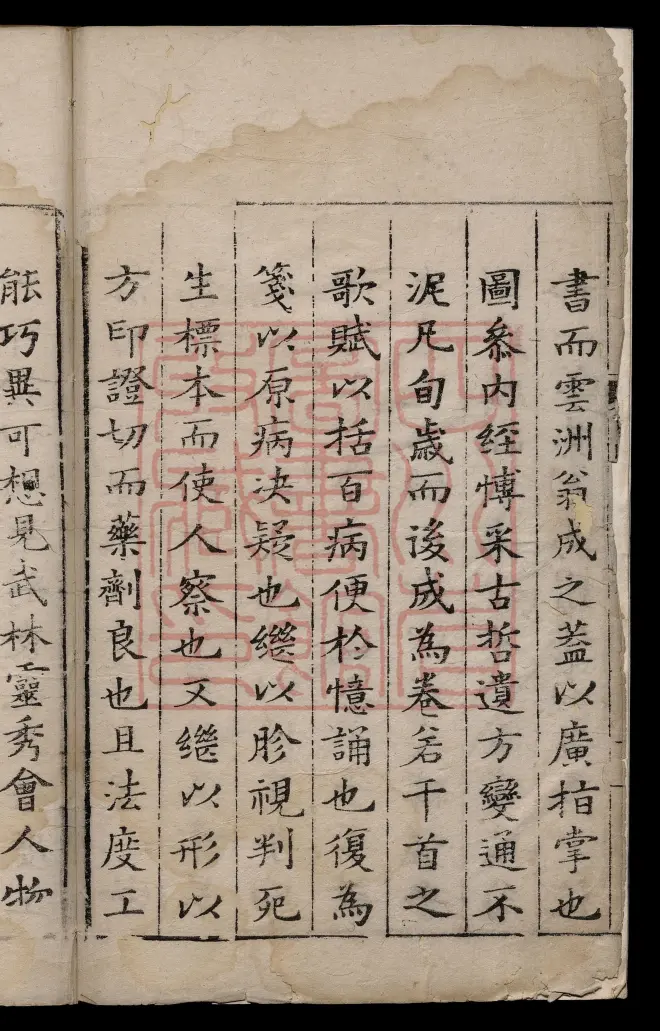 書而雲洲翁成之葢以廣指掌也
圖叅内经愽采古哲遺方變通不
泥凡旬歲而後成為卷若干首之
歌賦以括百病便於憶誦也復為
箋以原病决疑也繼以胗視判死
生標本而使人察也又繼以形以
方印證切而藥劑良也且法度工
能巧異可想見武林靈秀會人物